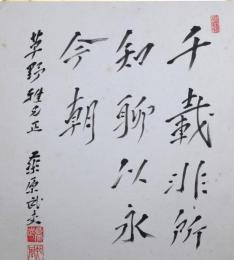 千載非所
知聊以永
今朝
草野雅兄正
桑原武夫